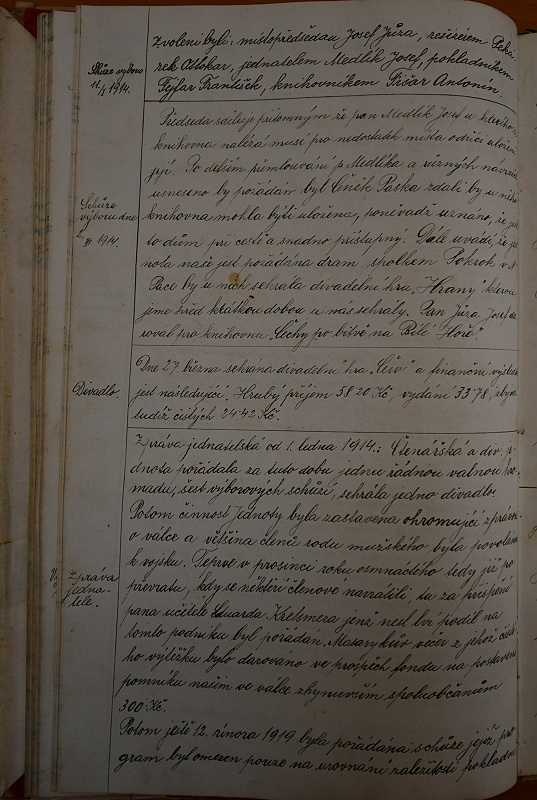 Zvoleni byli: místopředsedau Josef Jůza, režisérem Peká-
rek Ottokar, jednatelem Medlík Josef, pokladníkem
Fejfar František, knihovníkem Pišar Antonín.
Schůze výboru
11./I. 1914.
Předseda sděluje přítomným že pan Medlík Josef u kterého
knihovna nalézá musí pro nedostatek místa odříci uložení
její. Po delším přimlouvání p. Medlíka a různých návrzích
usneseno by požádán byl Čeněk Paska zdali by u něho
knihovna mohla býti uložena, poněvadž uznáno, že je
to dům při cestě a snadno přístupný. Dále uvádí, že jed-
nota naše jest požádána dram. spolkem Pokrok v N.
Pace by u nich sehrála divadelní hru "Hrany" kterou
jsme před krátkou dobou u nás sehráli. Pan Jůza Josef da-
roval pro knihovnu "Čechy po bitvě na Bílé Hoře".
Schůze
výboru dne
1914.
Dne 27. března sehrána divadelní hra a finanční výsledek
jest následující, Hrubý příjem 58 20 Kč, vydání 33 78, zbývá
tudíž čistých 24 42 Kč.
Divadlo.
Zpráva jednatelská od 1. ledna 1914.: Čtenářská a div. je-
dnota pořádala za tuto dobu jednu řádnou valnou hro-
madu, šest výborových schůzí, sehrála jedno divadlo.
Potom činnost Jednoty byla zastavena ohromující zprávou
o válce a většina členů rodu mužského byla povolána
k vojsku. Teprve v prosinci roku osmnáctého tedy již po
převratu, kdy se někteří členové navrátili, tu za přispění
pana učitele Eduarda Kretsmera jenž nesl lví podíl na
tomto podniku byl pořádán Masarykův večer z jehož čisté-
ho výtěžku bylo darováno ve prospěch fondu na postavení
pomníku našim ve válce zhynuvším spoluobčanům
300 Kč.
Zpráva
jedna-
tele.
Potom ještě 12. února 1919 byla pořádána schůze jejíž pro-
gram byl omezen pouze na urovnání záležitostí pokladní